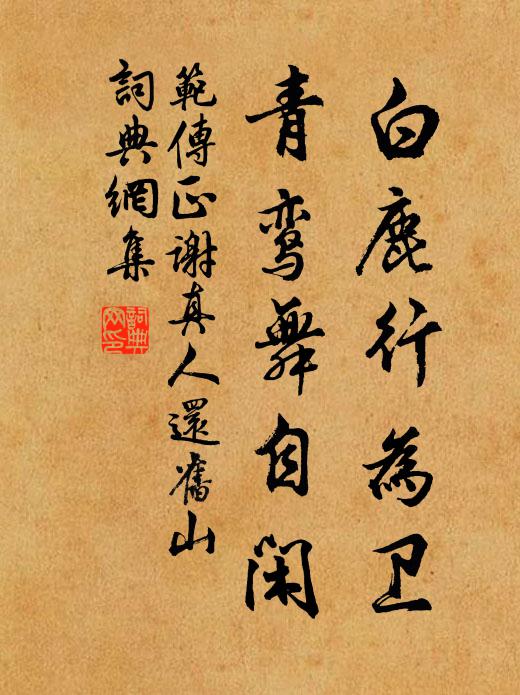 白鹿行為卫
青鸾舞自闲
範傳正谢真人還舊山
詞典網集
詞典網印